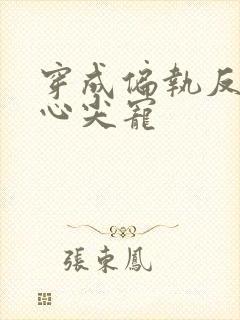 穿成偏執反
心尖寵
張東鳳